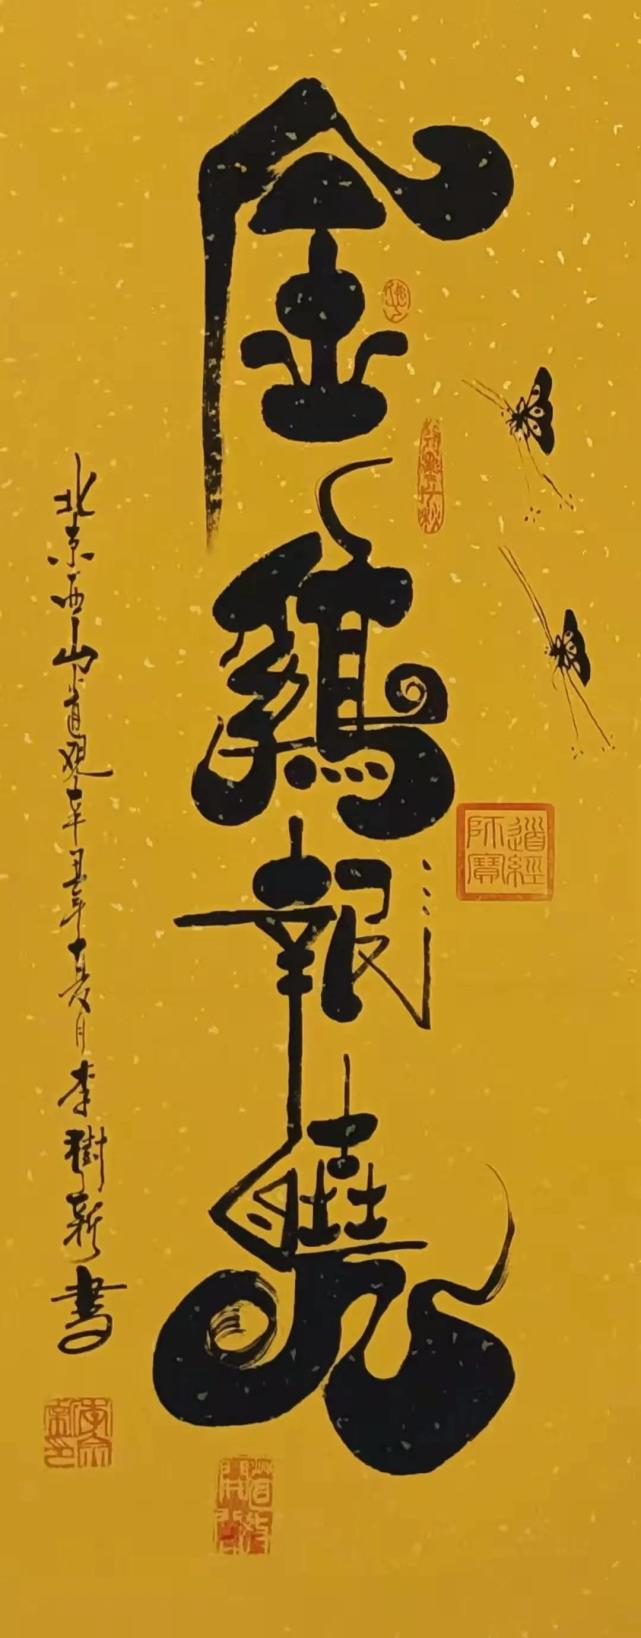 金鷄報曉
北京西山道观辛丑年十一月李樹新書
道經師寶